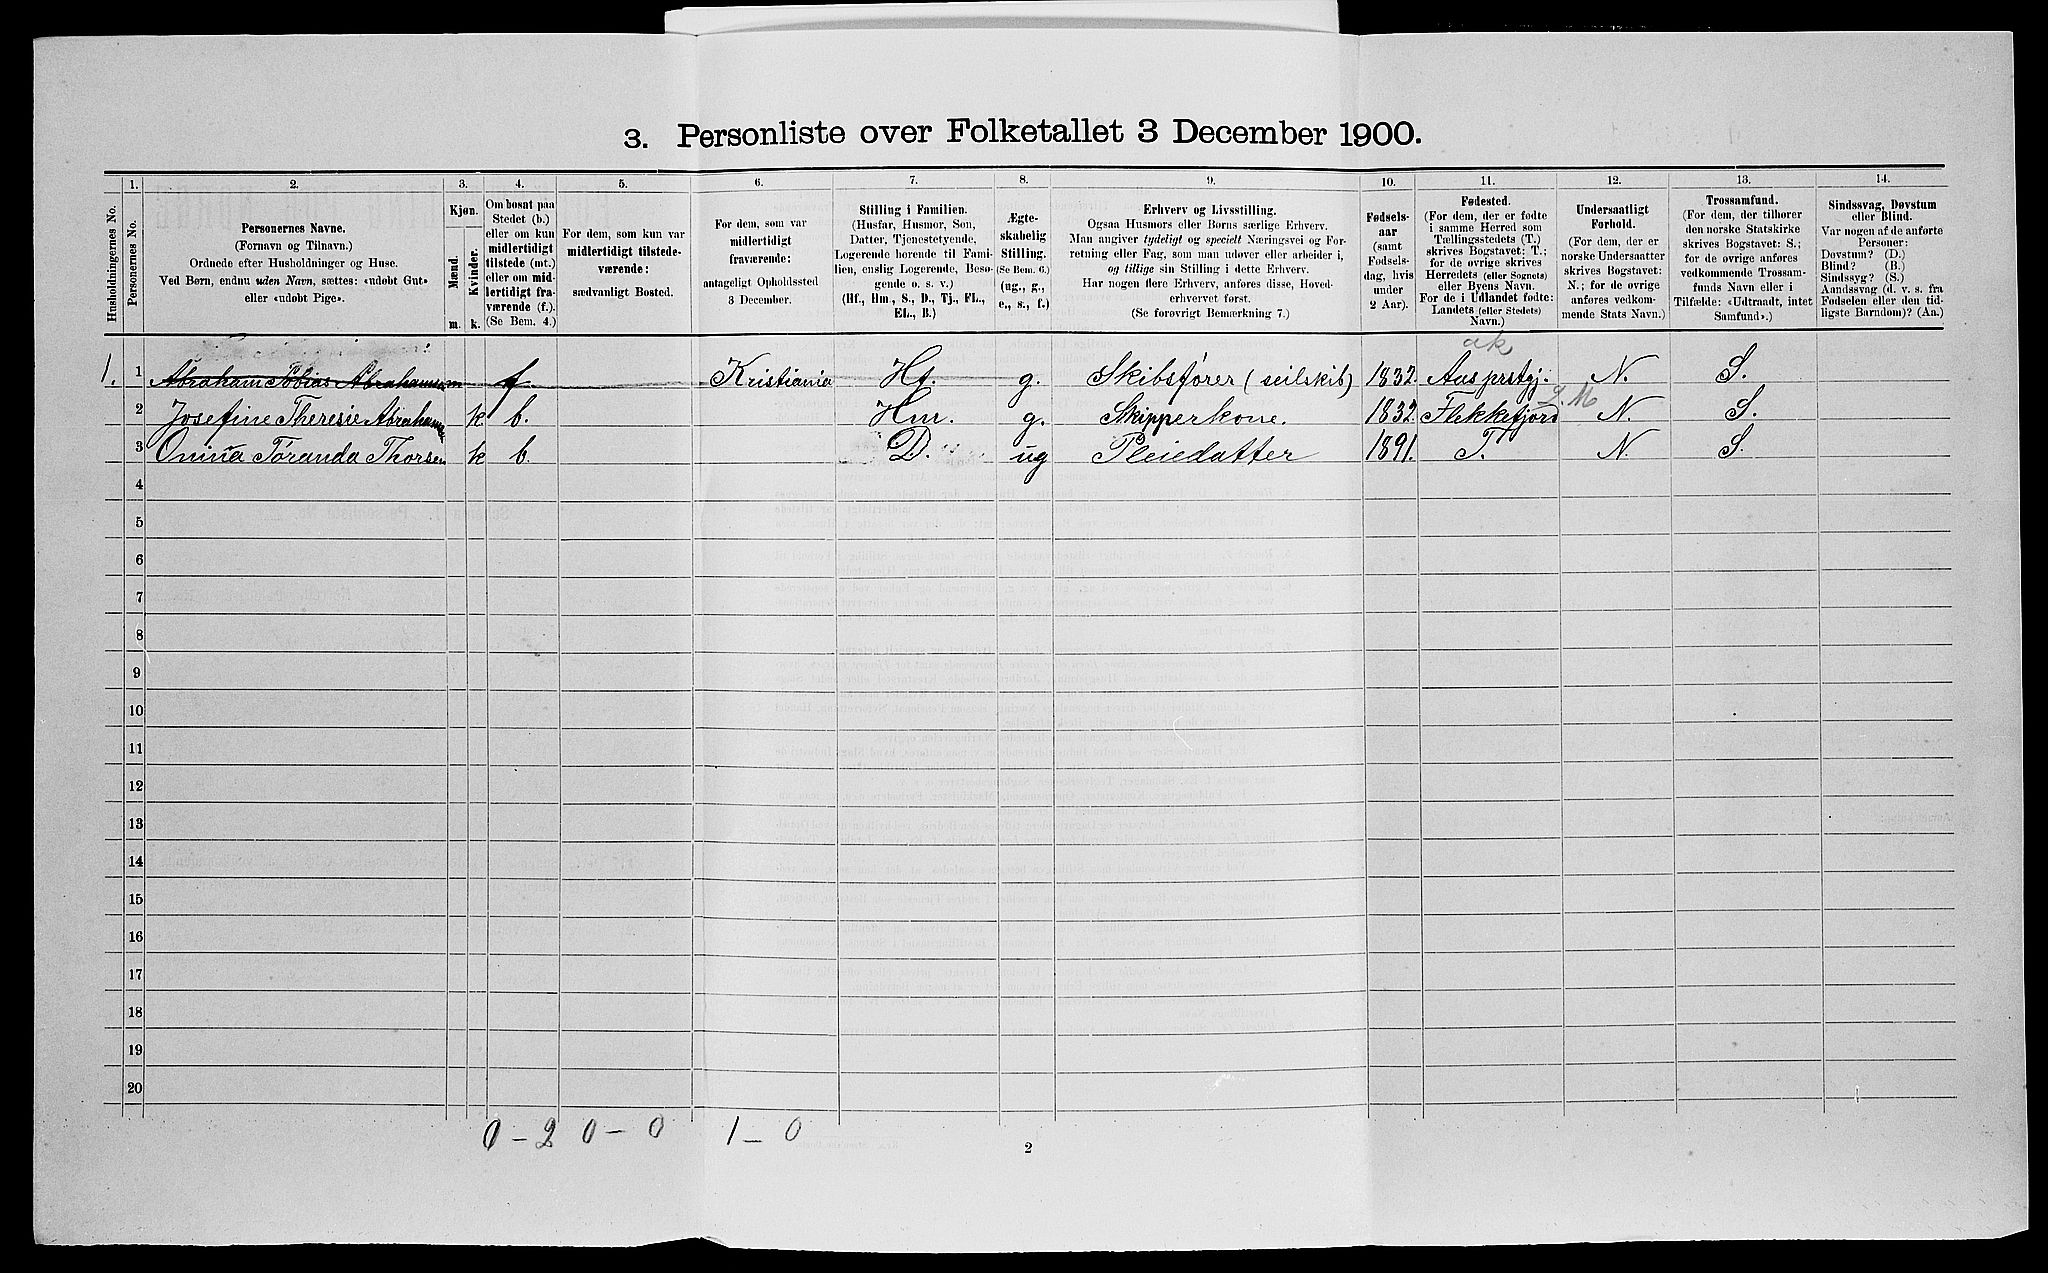 3. Personliste over Folketallet 3 December 1900.
Husholdningernes No.
1.
Personernes No.
2.
Personernes Navne.
(Fornavn og Tilnavn.)
Ordnede efter Husholdninger og Huse.
Ved Børn, endnu uden Navn, sættes: «udøbt Gut»
eller «udøbt Pige».
3.
Kjøn.
Mænd.
Kvinder.
m. k.
4.
Om bosat paa
Stedet (b.)
eller om kun
midlertidigt
tilstede (mt.)
eller om mid-
lertidigt fra-
værende (f.).
(Se Bem. 4.)
5.
For dem, som kun var
midlertidigt tilstede-
værende:
sædvanligt Bosted.
6.
For dem, som var
midlertidigt
fraværende:
antageligt Opholdssted
3 December.
7.
Stilling i Familien.
(Husfar, Husmor, Søn,
Datter, Tjenestetyende,
Logerende hørende til Fami-
lien, enslig Logerende, Besø-
gende o. s. v.)
(Hf., Hm., S., D., Tj., FL.,
EL., B.)
8.
Ægte-
skabelig
Stilling.
(Se Bem. 6.)
(ug., g.,
e., s., f.)
9.
Erhverv og Livsstilling.
Ogsaa Husmors eller Børns særlige Erhverv.
Man angiver tydeligt og specielt Næringsvei og For-
retning eller Fag, som man udøver eller arbeider i,
og tillige sin Stilling i dette Erhverv.
Har nogen flere Erhverv, anføres disse, Hoved-
erhvervet først.
(Se forøvrigt Bemærkning 7.)
10.
Fødsels-
aar
(samt
Fødsels-
dag, hvis
under
2 Aar).
11.
Fødested.
(For dem, der er fødte
i samme Herred som
Tællingsstedets (T.)
skrives Bogstavet: T.;
for de øvrige skrives
Herredets (eller Sognets)
eller Byens Navn.
For de i Udlandet fødte:
Landets (eller Stedets)
Navn.)
12.
Undersaatligt
Forhold.
(For dem, der er
norske Undersaatter
skrives Bogstavet:
N.; for de øvrige
anføres vedkom-
mende Stats Navn.)
13.
Trossamfund.
(For dem, der tilhører
den norske Statskirke
skrives Bogstavet: S.;
for de øvrige anføres
vedkommende Trossam-
funds Navn eller i
Tilfælde: «Udtraadt, intet
Samfund».)
14.
Sindssvag, Døvstum
eller Blind.
Var nogen af de anførte
Personer:
Døvstum? (D.)
Blind? (B.)
Sindssyg? (S.)
Aandssvag (d. v. s. fra
Fødselen eller den tid-
ligste Barndom)? (Aa.)
ak
1. 1 Abraham Tobias Abrahamsen f Kristiania Hf. g. Skibsfører (seilskib) 1832. Aas prstgj. N. S.
L. M
2 Josefine Theresie Abrahamsen k b. Hm. g. Skipperkone. 1832. Flekkefjord N. S.
3 Omina Toranda Thorsen k b. D. ug Pleiedatter 1891. T. N. S.
4
5
6
7
8
9
10
11
12
13
14
15
16
17
18
19
20
0 – 2 0 – 0 1 – 0
2